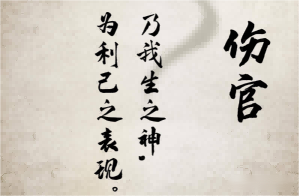 伤官
乃我生之神。
为利己之表现。